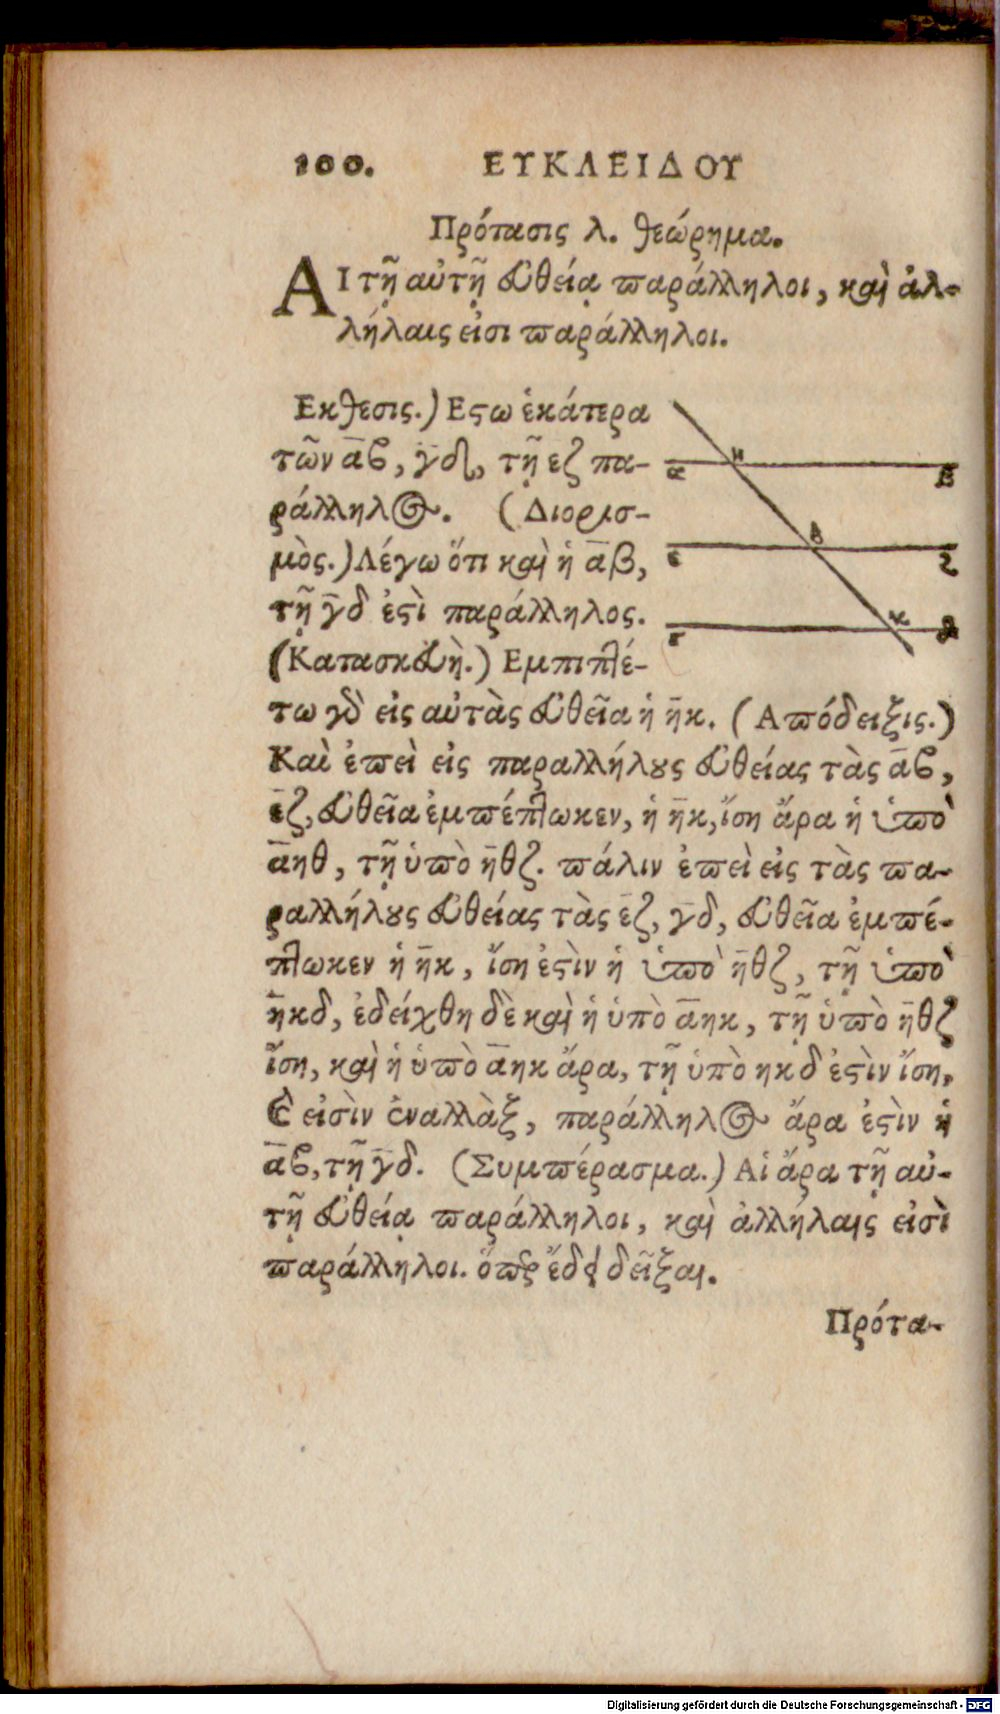 100. ΕΥΚΛΕΙΔΟΥ
Πρότασις λ. θεώρημα.
ΑΙ τῇ αὐτῇ εὐθείᾳ παράλληλοι, καὶ ἀλ-
λήλαις εἰσι παράλληλοι.
Εκθεσις.) Εςω ἑκάτερα
τῶν α̅ϐ, γ̅δ, τῇ εζ πα-
ράλληλος. (Διορισ-
μὸς.) Λέγω ὅτι καὶ ἡ α̅β,
τῇ γ̅δ ἐςὶ παράλληλος.
(Κατασκευὴ.) Εμπιπτέ-
τω γὰρ εἰς αὐτὰς εὐθεῖα ἡ η̅κ. (Απόδειξις.)
Καὶ ἐπεὶ εἰς παραλλήλȣς εὐθείας τὰς α̅ϐ,
ε̅ζ, εὐθεῖα ἐμπέπτωκεν, ἡ η̅κ, ἴση ἄρα ἡ ὑπὸ
α̅ηθ, τῇ ὑπὸ η̅θζ. πάλιν ἐπεὶ εἰς τὰς πα-
ραλλήλȣς εὐθείας τὰς ε̅ζ, γ̅δ, εὐθεῖα ἐμπέ-
πτωκεν ἡ η̅κ, ἴση ἐςὶν ἡ ὑπὸ η̅θζ, τῇ ὑπὸ
η̅κδ, ἐδείχθη δὲ καὶ ἡ ὑπὸ α̅ηκ, τῇ ὑπὸ η̅θζ
ἴση, καὶ ἡ ὑπὸ α̅ηκ ἄρα, τῇ ὑπὸ ηκδ ἐςὶν ἴση,
Καὶ εἰσὶν ἐναλλὰξ, παράλληλος ἄρα ἐςὶν ἡ
α̅ϐ, τῇ γ̅δ. (Συμπέρασμα.) Αἱ ἄρα τῇ αὐ-
τῇ εὐθείᾳ παράλληλοι, καὶ ἀλλήλαις εἰσὶ
παράλληλοι. ὅπερ ἔδει δεῖξαι.
Πρότα-
α η β
ε θ ζ
γ κ δ
Digitalisierung gefördert durch die Deutsche Forschungsgemeinschaft - DFG